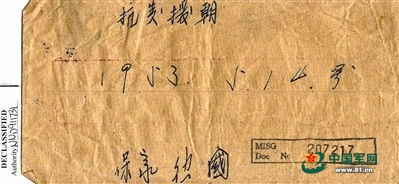 抗美援朝
1953. 5. 14. 号
保家
國
DECLASSIFIED
Authority
MISG
Doc No 207217
中国军网
www.81.cn